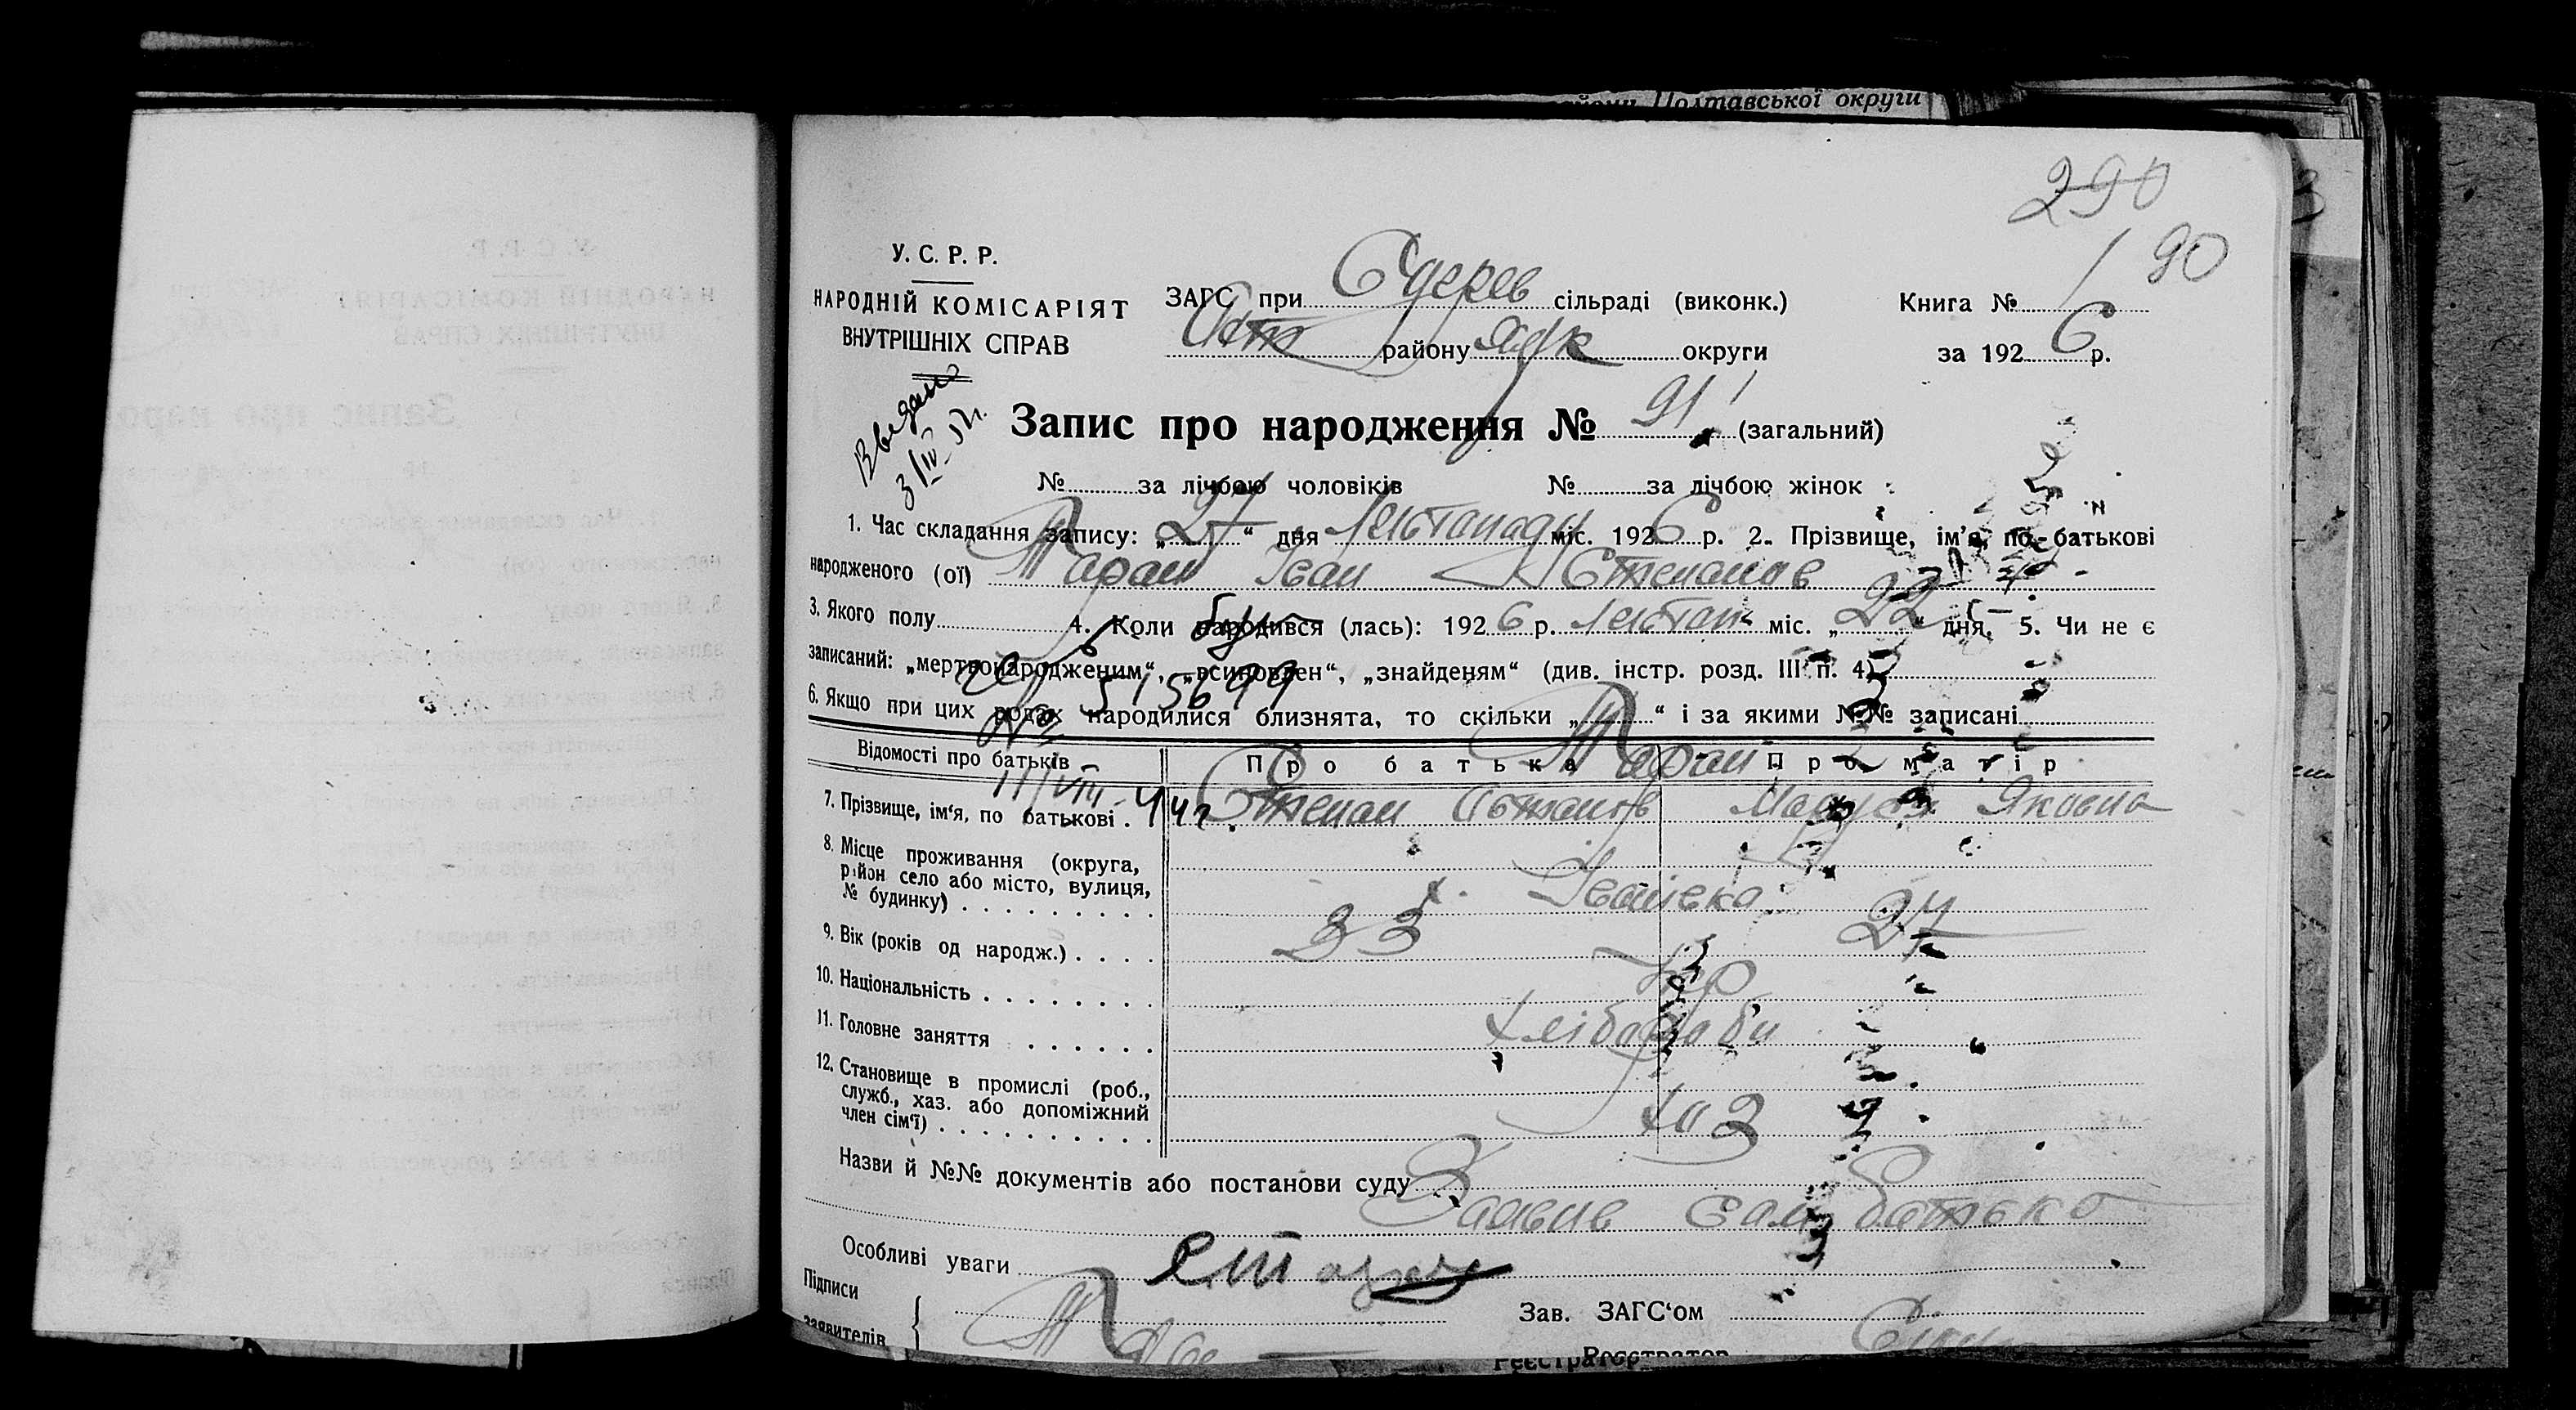 Полтавської округи
290
90
У. С. Р. Р.
НАРОДНІЙ КОМІСАРІЯТ
ВНУТРІШНІХ СПРАВ
ЗАГС при сільраді (виконк.)
району округи
Книга №
за 192 6 р.
Видано
3/IV
Запис про народження № 91 (загальний)
№ за лічбою чоловіків № за лічбою жінок
1. Час складання запису: „27“ дня Листопаду міс. 192 6 р. 2. Прізвище, ім'я, по-батькові
народженого (ої) Таран Іван Степанов
3. Якого полу 4. Коли народився (лась): 192 6 р. Листоп міс. „22“ дня. 5. Чи не є
записаний: „мертвонародженим“, „всиновлен“, „знайденям“ (див. інстр. розд. III п. 4)
№ 515699
6. Якщо при цих родах народилися близнята, то скільки „ “ і за якими №№ записані
Відомості про батьків Про батька Про матір
11/VIII-44г.
Таран
7. Прізвище, ім'я, по батькові Степан Остапов Маруся Яковна
8. Місце проживання (округа,
район село або місто, вулиця,
№ будинку) х. Іванівка
9. Вік (років од народж.) 33 27
10. Національність Укр
11. Головне заняття Хліборби
12. Становище в промислі (роб.,
служб., хаз. або допоміжний
член сім'ї) хаз
Назви й №№ документів або постанови суду
Заявив сам батько
Особливі уваги
Підписи
заявителів
Зав. ЗАГС'ом
Реєстратор